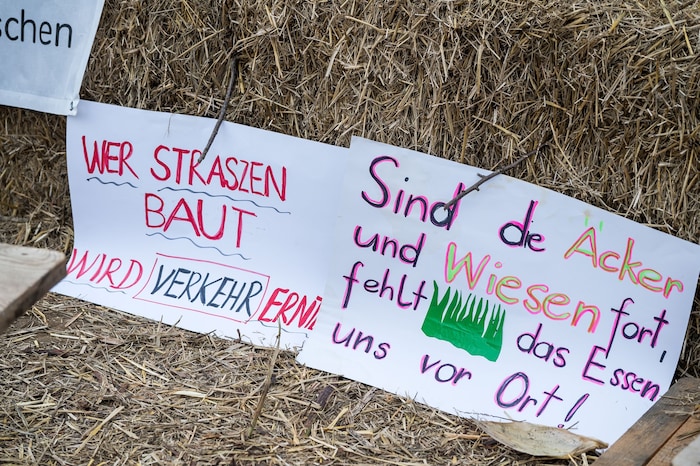 schen
WER STRASZEN
BAUT
WIRD VERKEHR
Sind die Äcker
und Wiesen fort,
fehlt das Essen
uns vor Ort!